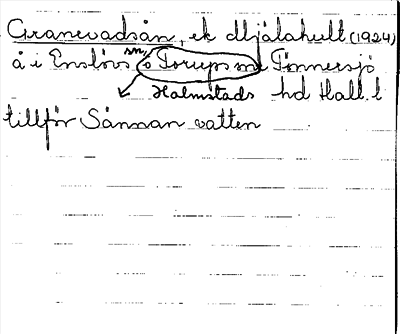 Granevadsån, ek Mjälahult (1924)
å i Enslövs sn, o Torups sn i Tönnersjö
Halmstads hd Hall. l
tillför Sännan vatten